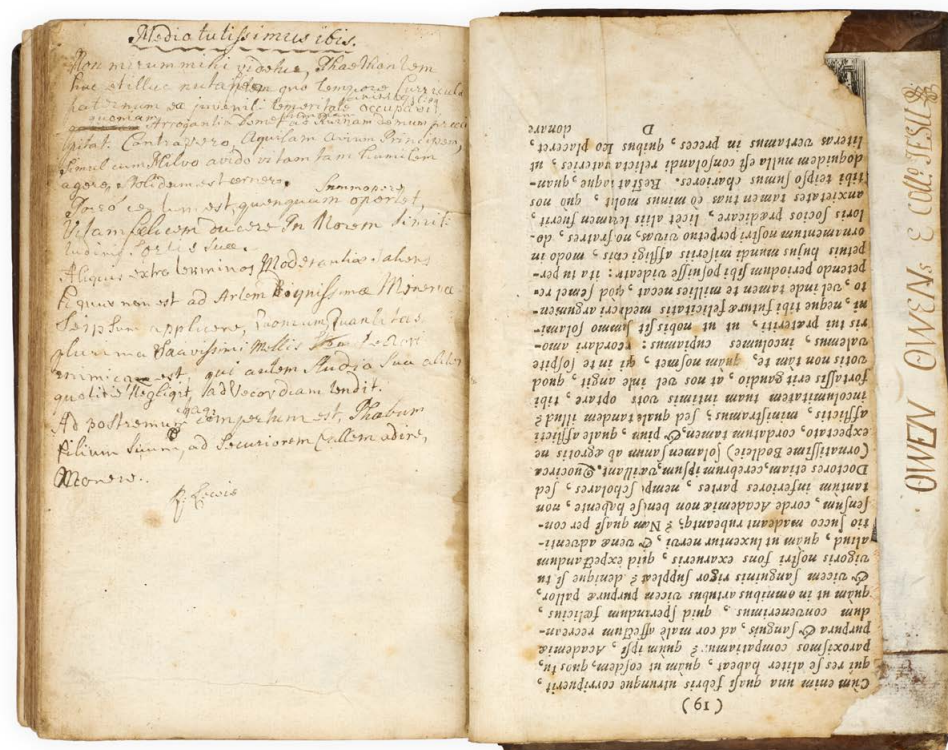 Media tutissimus ibis.
Non mirum mihi videtur, Phaethontem
huc et illuc nutantem quo tempore Curricula
Paternum ex juvenili temeritate occupavit
quoniam Arrogantia Semet ad Ruinam
Contra vero, Aquilam avium Principem,
Simul cum Milvo avido vitam tam humilem
agere, Stolidum est cernere. Summopere
quenquam oportet,
Vitam felicem ducere In Morem Simili-
tudinis Sortis Suæ.
Aliquis extra terminos Moderantiæ Saliens
æquus non est ad Artem Dignissimæ Minervæ
Seipsum applicere, Quantitas
plurima Suavissimi Mellis
inimica est, qui autem Studia Sua aliter
Negligit, ad Vecordiam tendit.
Ad postremum compertum est, Phœbum
filium Suum, ad Securiorem Callem adire,
Monere.
P: Lewis
( 19 )
Cùm enim una quasi febris utrunque corripuerit,
qui res se aliter habeat, quàm ut eosdem, quos tu,
paroxismos compatiamur? quùm ipsi, Academiæ
purpura & sanguis, ad cor malè affectum recrean-
dum convenerimus, quid sperandum fœlicius,
quàm ut in omnibus artubus vicem purpuræ pallor,
& vicem sanguinis rigor suppleat? denique si tu
vigoris nostri fons exarueris, quid expectandum
aliud, quàm ut luxentur nervi, & venæ adventi-
tio succo madeant rubantq;? Nam quasi per con-
sensum, corde Academiæ non benè se habente, non
tantum inferiores partes, nempè scholares, sed
Doctores etiam, cerebrum ipsum, vacillant. Quocirca
(ornatissime Bodleie) solamen sanum ab ægrotis ne
expectato, cordatum tamen, & pium, quale afflicti
afflictis, ministramus; sed quale tandem illud?
incolumitatem tuam intimis votis optare, tibi
fortassis erit gaudio, at nos vel inde angit, quod
votis non tam te, quàm nosmet, qui in te sospite
valemus, incolumes cupiamus: recordari amo-
ris tui præteriti, ut ut nobis sit summo solami-
ni, neque tibi futuræ felicitatis mediocri argumen-
to, vel inde tamen te millies necat, quòd semel re-
petendo periodum sibi posuisse videatur: ita tu per-
petuis hujus mundi miseriis affligi cis, modò in
ornamentum nostri perpetuo vivas, nos fratres, do-
loris socios prædicare, licèt aliis levamen fuerit,
anxietates tamen tuas eò minus molit, quò nos
tibi teipso sumus chariores. Restat itaque, quan-
doquidem nulla est consolandi relicta materies, ut
literas vertamus in preces, quibus Eo placeat,
D donare
OWEN OWENS È COLL: JESU